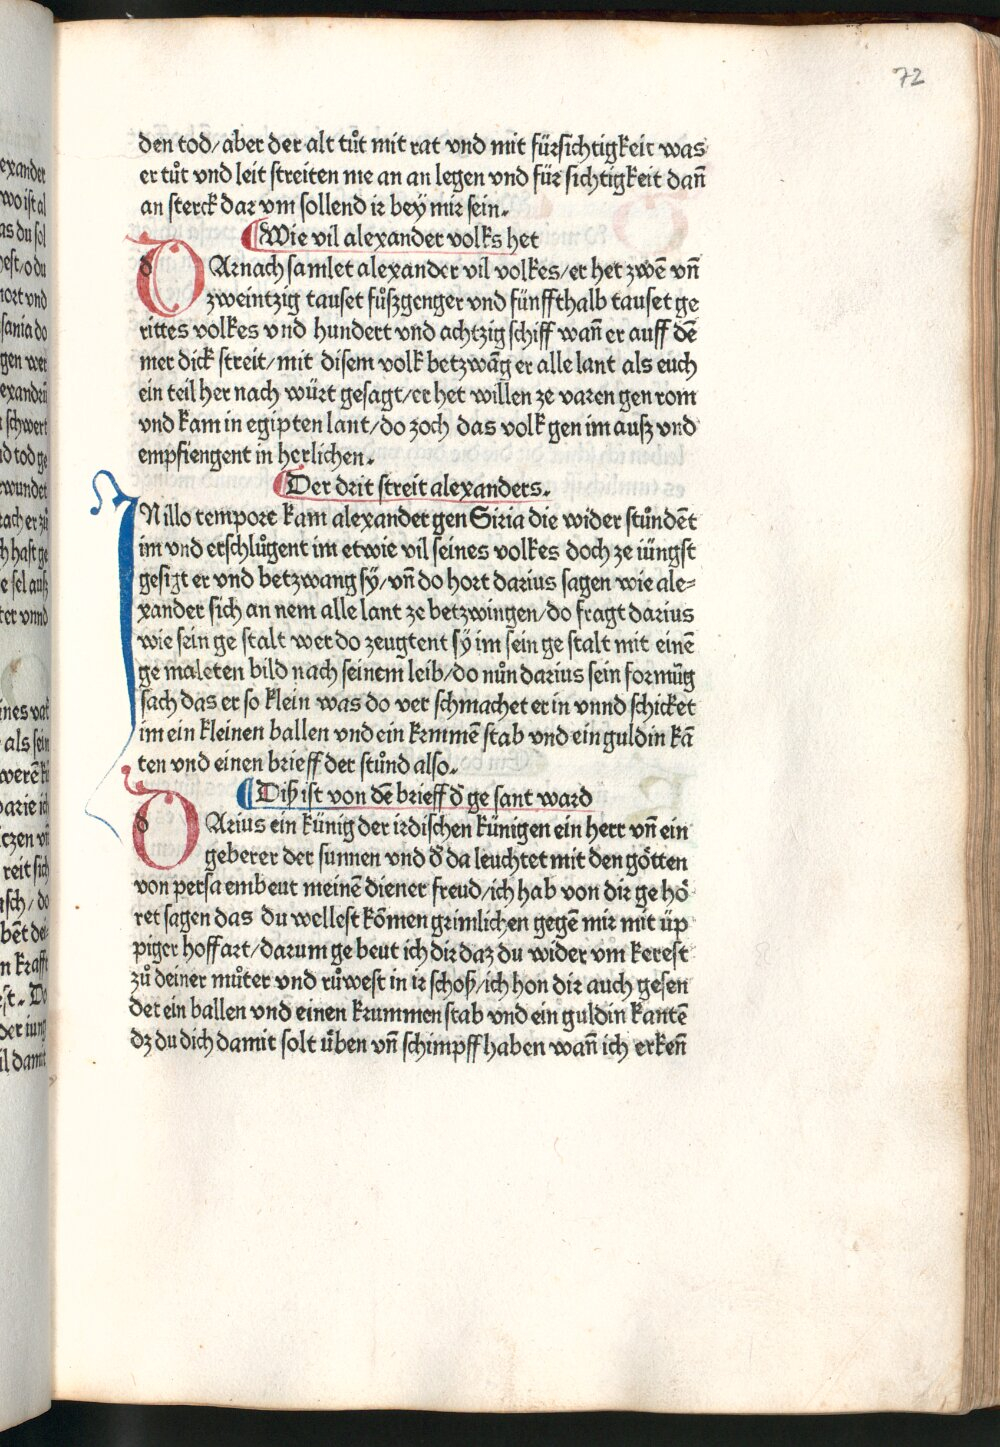 72
den tod/aber der alt tůt mit rat vnd mit fürsichtigkeit was
er tůt vnd leit streiten me an an legen vnd für sichtigkeit dañ
an sterck dar vm sollend ir bey mir sein.
Wie vil alexander volks het
DArnach samlet alexander vil volkes/er het zwē vñ
zweintzig tauset fůszgenger vnd fünffthalb tauset ge
rittes volkes vnd hundert vnd achtzig schiff wañ er auff dē
mer dick streit/mit disem volk betzwāg er alle lant als euch
ein teil her nach würt gesagt/er het willen ze varen gen rom
vnd kam in egipten lant/do zoch das volk gen im ausz vnd
empfiengent in herlichen.
Der drit streit alexanders.
INillo tempore kam alexander gen Siria die wider stůndēt
im vnd erschlůgent im etwie vil seines volkes doch ze iüngst
gesigt er vnd betzwang sÿ/vñ do hort darius sagen wie ale=
xander sich an nem alle lant ze betzwingen/do fragt darius
wie sein ge stalt wer do zeugtent sÿ im sein ge stalt mit einē
ge maleten bild nach seinem leib/do nůn darius sein formūg
sach das er so klein was do ver schmachet er in vnnd schicket
im ein kleinen ballen vnd ein krmmē stab vnd ein guldin kā
ten vnd einen brieff der stůnd also.
Diß ist von dē brieff d̄ ge sant ward
DArius ein künig der irdischen künigen ein herr vñ ein
geberer der sunnen vnd d̄ da leuchtet mit den götten
von persa embeut meinē diener freud/ich hab von dir ge hö
ret sagen das du wellest kōmen grimlichen gegē mir mit üp
piger hoffart/darum ge beut ich dir daz du wider vm kerest
zů deiner můter vnd růwest in ir schoß/ich hon dir auch gesen
det ein ballen vnd einen krummen stab vnd ein guldin kantē
dz du dich damit solt üben vñ schimpff haben wañ ich erkeñ